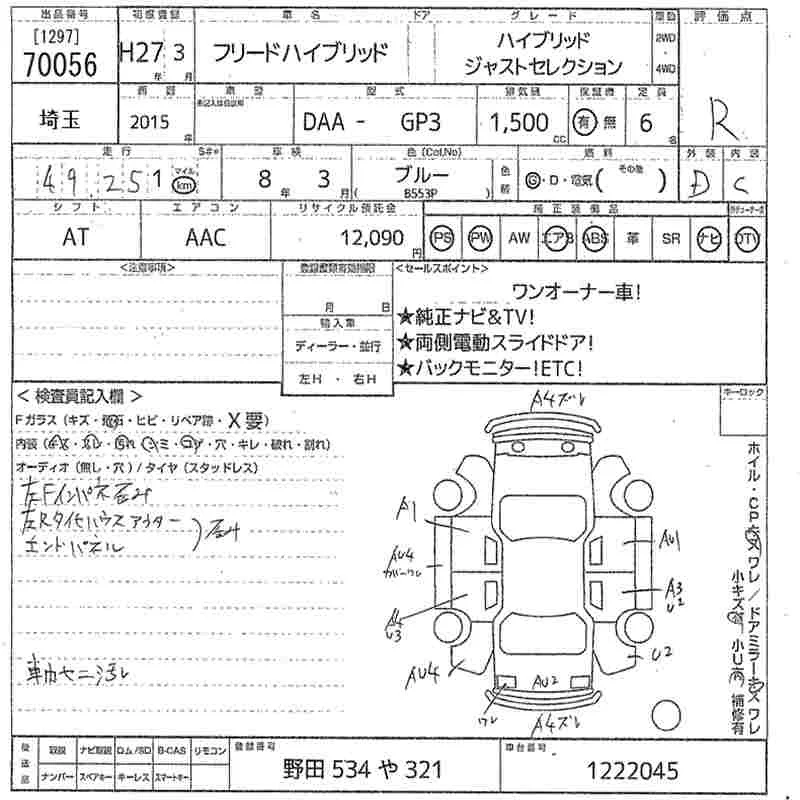 出品番号 初度登録 車名 ドア グレード 駆動 評価点
[1297]
70056 H27 3 フリードハイブリッド ハイブリッド 2WD R
年 月 ジャストセレクション 4WD
車歴 型式 排気量 保証書 定員
埼玉 2015 年 DAA - GP3 1,500 cc 有 無 6 名
走行 S#* 車検 色(Col,No) 燃料 外装 内装
49,251 マイル km 8 年 3 月 ブルー G・D・電気( その他 ) D C
( B553P )
シフト エアコン リサイクル預託金 純正装備品
AT AAC 12,090 円 PS PW AW エアB ABS 革 SR ナビ DTV
<注意事項> 登録書類有効期限 <セールスポイント>
月 日 ワンオーナー車!
輸入車 ★純正ナビ&TV!
ディーラー・並行 ★両側電動スライドドア!
左H ・ 右H ★バックモニター!ETC!
< 検査員記入欄 > キーロック
Fガラス (キズ・飛石・ヒビ・リペア跡・X要)
内装 (キズ・汚レ・切れ・シミ・コゲ・穴・キレ・破れ・割れ)
オーディオ (無し・穴) / タイヤ (スタッドレス)
左Fインパネ歪み
左Rタイヤハウスアウター
エンドパネル ) 歪み
車内セニ汚レ
A4ズレ
A1
AU1
AU4
カバーワレ
A4
U3
A3
U2
AU4
U2
AU2
ワレ
A4ズレ
ホイル・CPキズワレ / ドアミラーキズワレ
小キズ有 小U有 補修有
後送品 取説 ナビ取説 ロム/SD B-CAS リモコン 登録番号 車台番号
ナンバー スペアキー キーレス スマートキー 野田 534 や 321 1222045